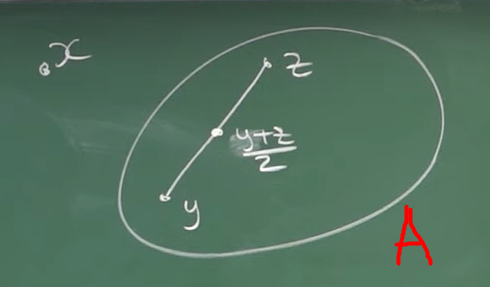 x
z
y+z
2
y
A